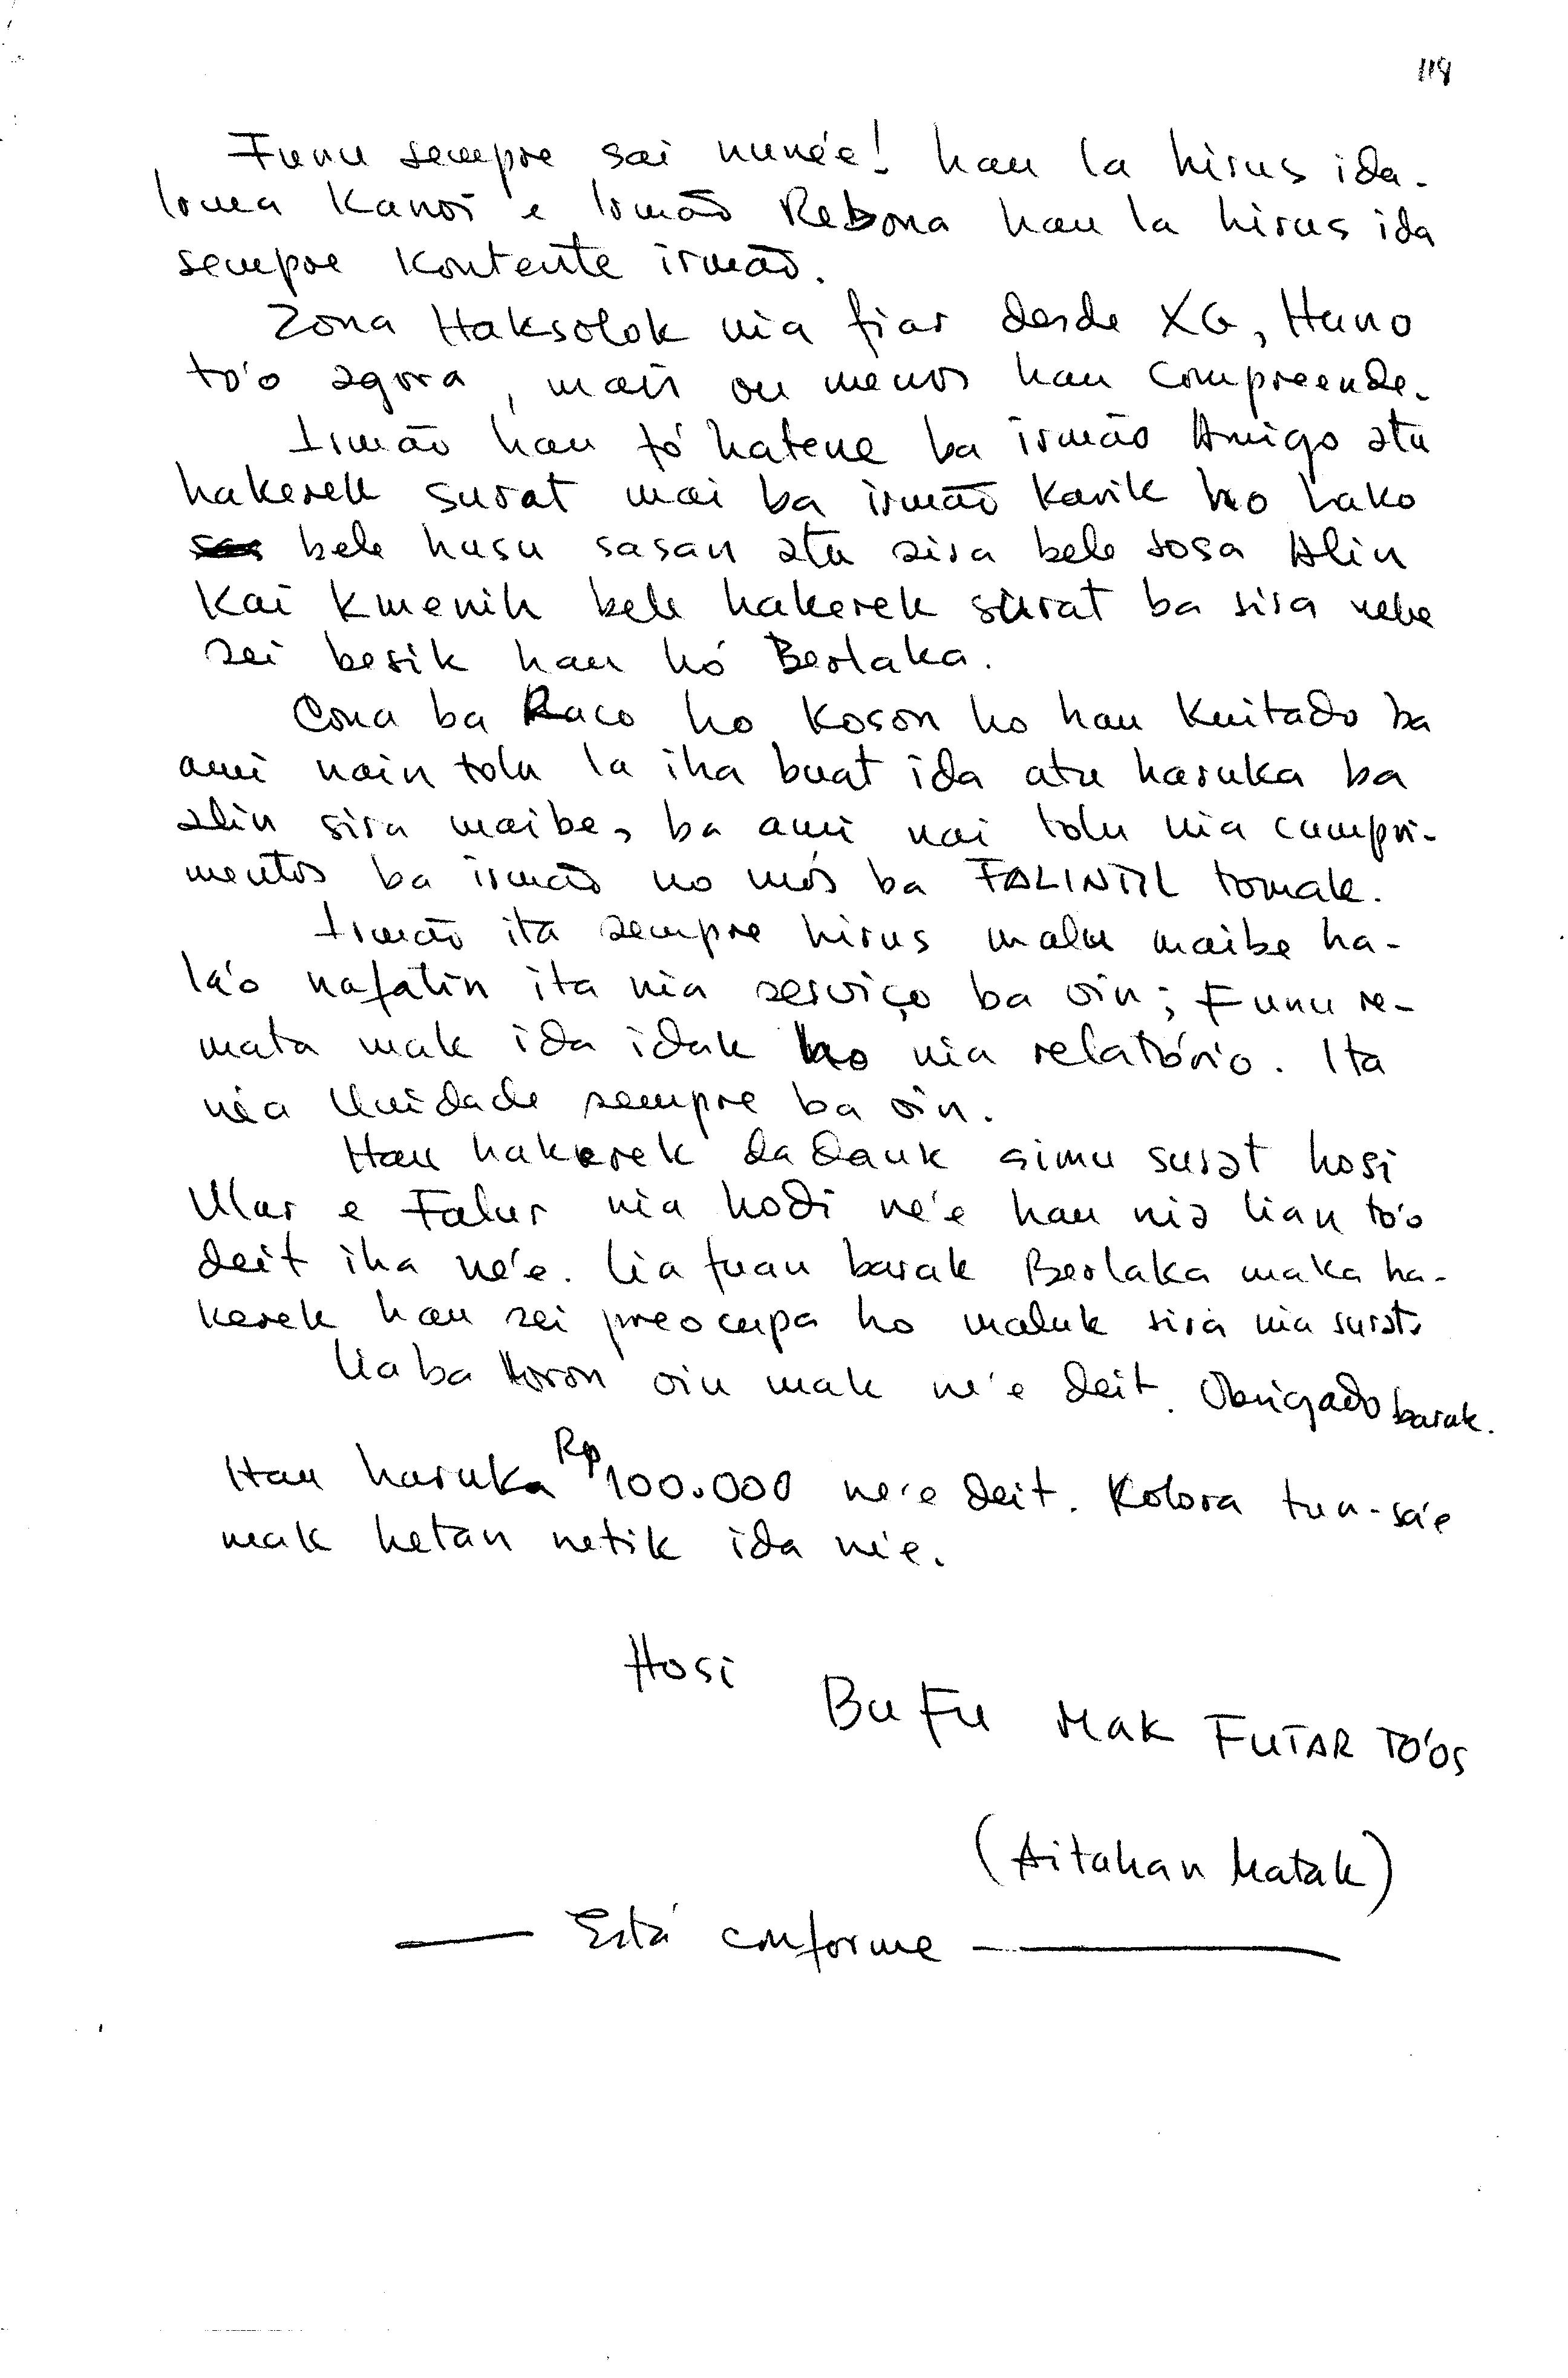 118
Funu sempre sai nune'e! hau la hirus ida.
Irma Kanoi e Irmão Rebona hau la hirus ida
sempre kontente irmão.
Zona Haksolok nia fiar desde XG, Huno
to'o agora, mais ou menos hau compreende.
Irmão hau fó hatene ba irmão Amigo atu
hakerek surat mai ba irmão Kavik ho Lako
bele husu sasan atu sira bele sosa Alin
Kai Kmenik bele hakerek surat ba sira nebe
sei besik hau hó Berlaka.
Cona ba Raco ho Koson ho hau Kuitado ba
ami nain tolu la iha buat ida atu haruka ba
alin sira maibe, ba ami nai tolu nia cumpri-
mentos ba irmão no mós ba FALINTIL tomak.
Irmão ita sempre hirus malu maibe ha-
la'o nafatin ita nia serviço ba oin; Funu re-
mata mak ida idak ho nia relatório. Ita
nia Unidade sempre ba oin.
Hau hakerek dadauk simu surat hosi
Ular e Falur nia hodi ne'e hau nia lian to'o
deit iha ne'e. Lia fuan barak Berlaka maka ha-
kerek hau sei preocupa ho maluk sira nia surat.
Lia ba horon oin mak ne'e deit. Obrigado barak.
Hau haruka Rp 100.000 ne'e deit. Kolora tun-sa'e
mak hetan netik ida ne'e.
Hosi
Bu Fu Mak FUTAR TO'OS
(Aitahan Matak)
Está conforme